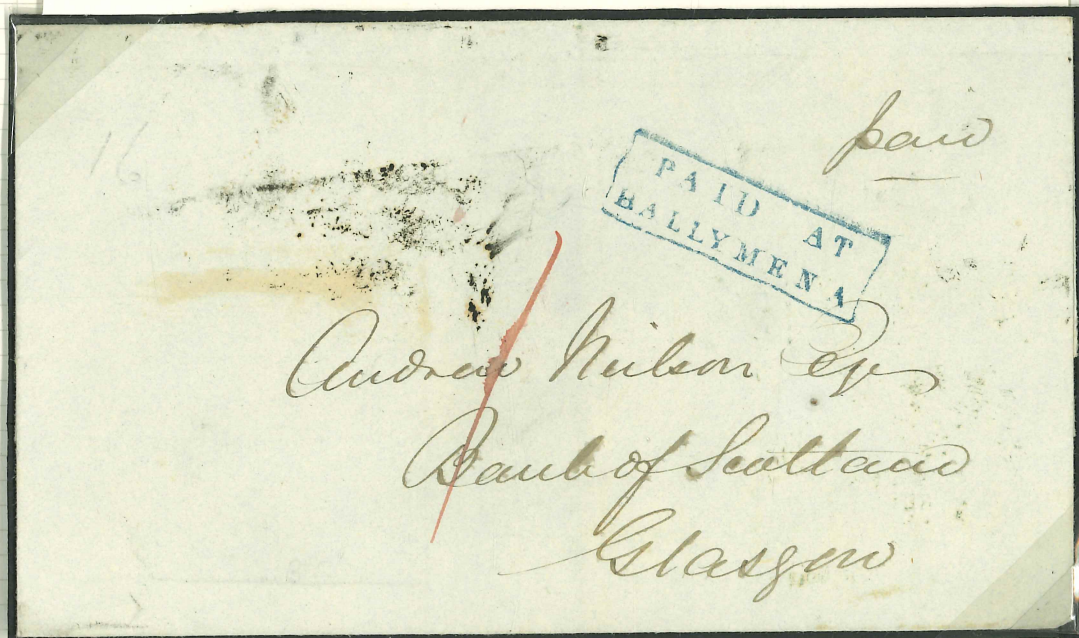 paid
PAID AT
BALLYMENA
16
Andrew Neilson Esqr
Bank of Scotland
Glasgow